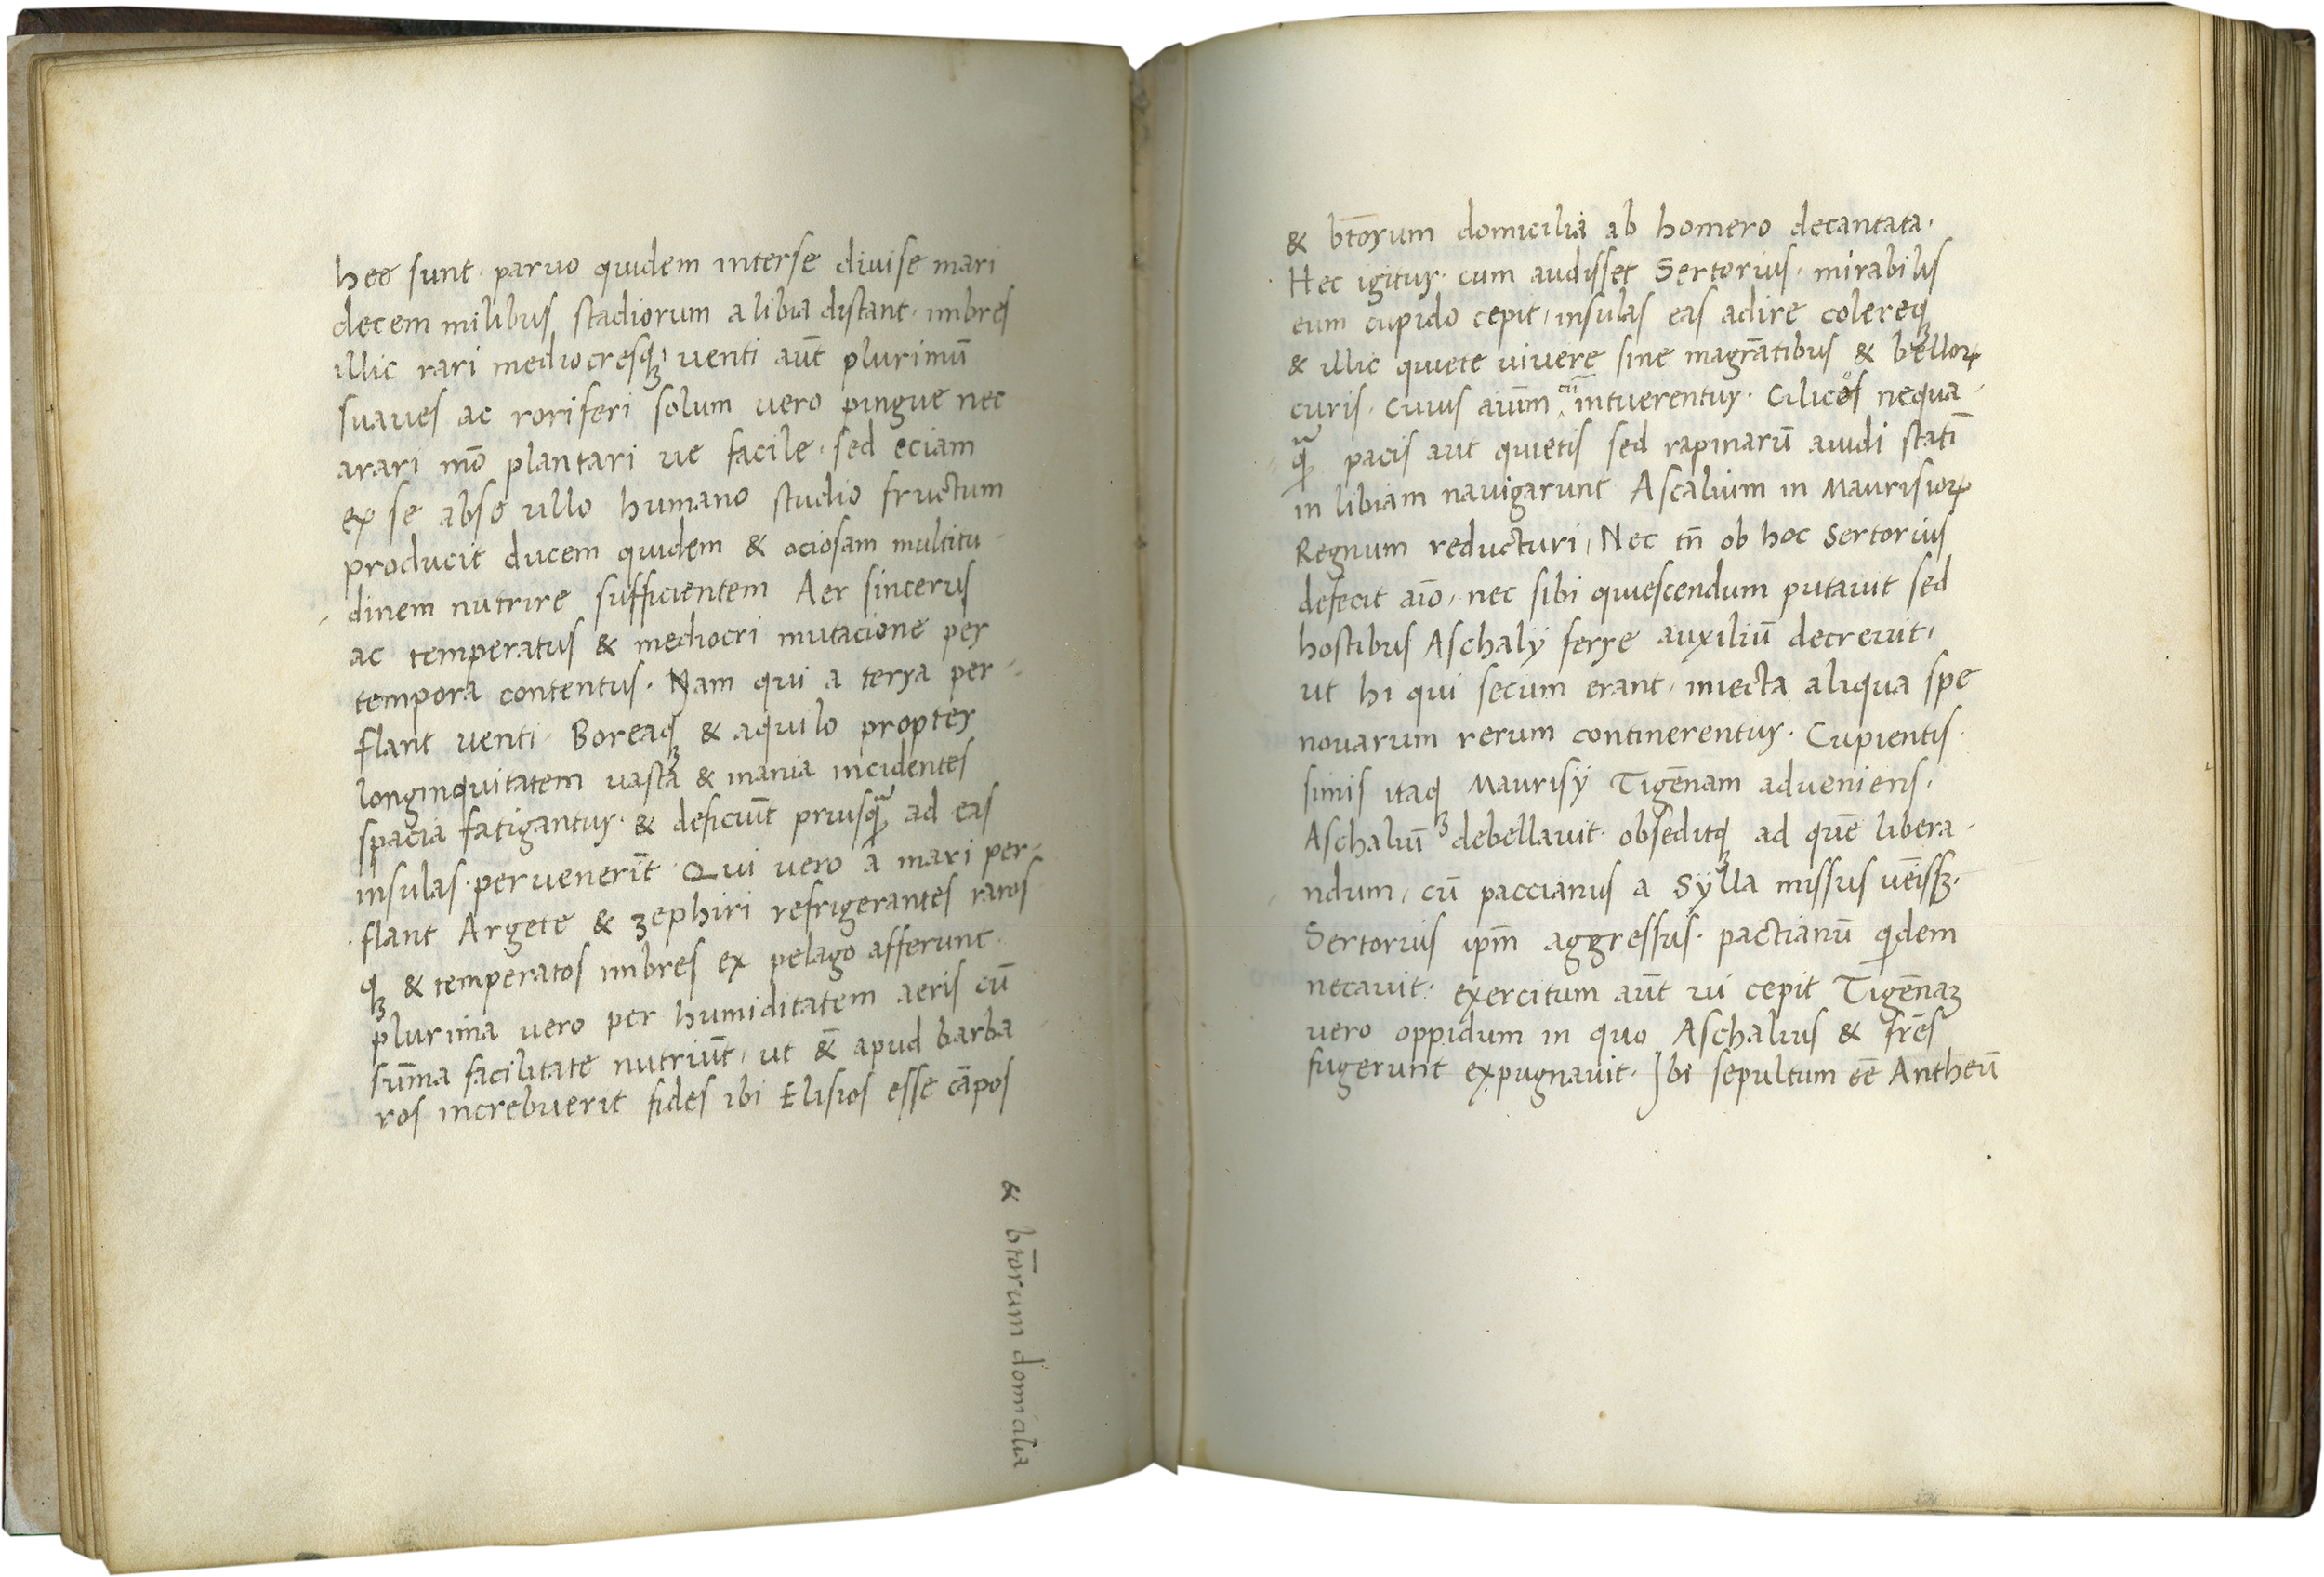 hee sunt · paruo quidem interse diuise mari
decem milibus stadiorum a libia distant · imbres
illic rari mediocresqꝫ, venti aut̄ plurimū
suaues ac roriferi solum vero pingue nec
arari mō plantari ue facile · sed eciam
ex se absꝫ ullo humano studio fructum
producit ducem quidem & ociosam multitu-
dinem nutrire sufficientem Aer sincerus
ac temperatus & mediocri mutacione per
tempora contentus. Nam qui a terra per-
flant venti · Boreaqꝫ & aquilo propter
longinquitatem vasta & inania incidentes
spacia fatigantur · & deficiūt priusqꝫ ad eas
insulas · peruenerīt Qui vero a mari per-
flant Argete & zephiri refrigerantes raros
qꝫ & temperatos imbres ex pelago afferunt ·
plurima vero per humiditatem aeris cū
sūma facilitate nutriūt, ut &̄ apud barba
ros increbuerit fides ibi Elisios esse cāpos
& bt̄orum domicilia
& bt̄orum domicilia ab homero decantata ·
Hec igitur · cum audisset Sertorius · mirabilis
eum cupido cepit, insulas eas adire colereqꝫ
& illic quiete uiuere sine magrātibus & belloꝝ
curis · Cuius aiūm cū intuerentur · Cilices nequa-
qꝫ pacis aut quietis sed rapinarū auidi statī
in libiam nauigarunt Ascalium in Maurisioꝝ
Regnum reducturi, Nec tn̄ ob hoc Sertorius
defecit aīo, nec sibi quiescendum putauit sed
hostibus Aschalÿ ferre auxiliū decreuit,
ut hi qui secum erant, iniecta aliqua spe
nouarum rerum continerentur · Cupientis-
simis itaqꝫ Maurisÿ Tigēnam adueniens ·
Aschaliū debellauit · obseditqꝫ ad quē libera-
ndum, cū paccianus a Sÿlla missus uēissꝫ ·
Sertorius ipm̄ aggressus · pactianū qͥdem
necauit · exercitum aūt ui cepit Tigēnaꝫ
vero oppidum in quo Aschalius & fr̄es
fugerunt expugnauit · Ibi sepultum eē Antheū